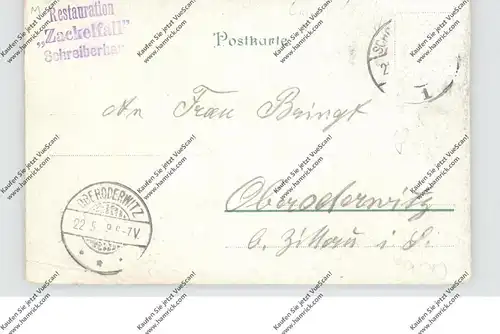 Restauration
„Zackelfall"
Schreiberhau
Postkarte
An Frau Bringt
Oberoderwitz
b. Zittau i. S.
OBERODERWITZ
22 5 9 6-7V.
Kaufen Sie jetzt VueScan!
www.hamrick.com